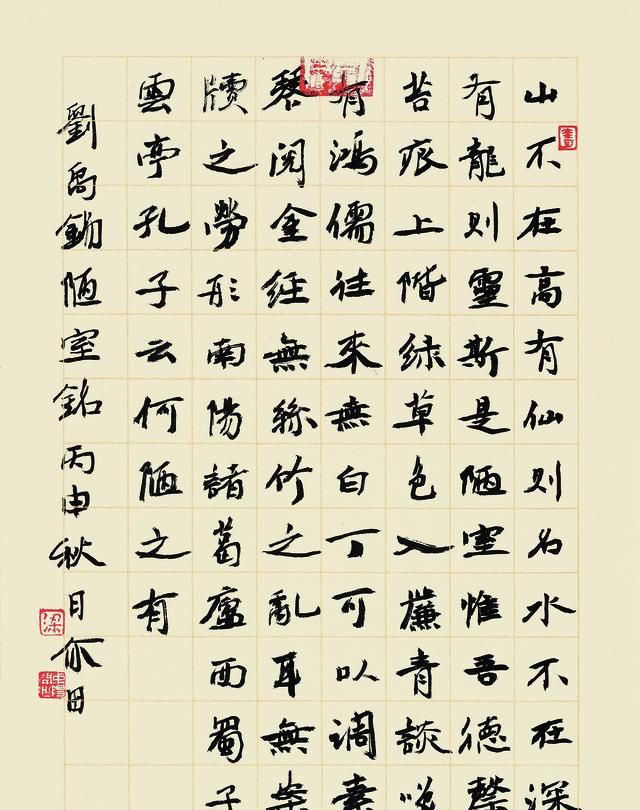 山不在高有仙則名水不在深
有龍則靈斯是陋室惟吾德馨
苔痕上階緑草色入簾青談咲
有鴻儒往來無白丁可以調素
琴閱金經無絲竹之亂耳無案
牘之勞形南陽諸葛廬西蜀子
雲亭孔子云何陋之有
劉禹錫陋室銘丙申秋日